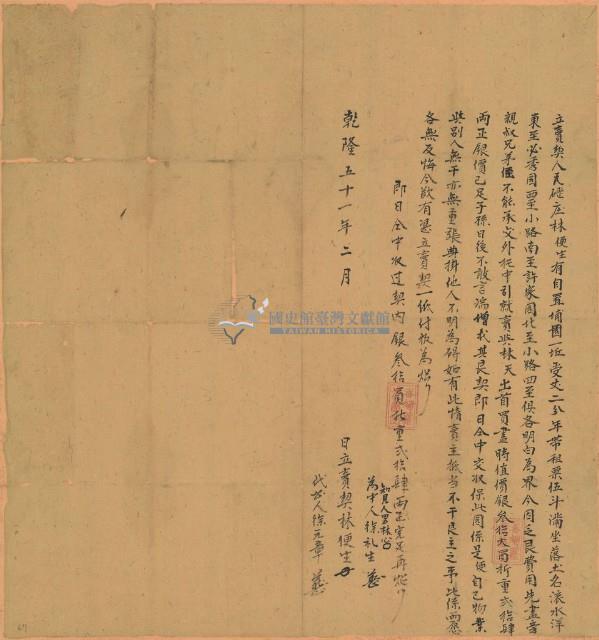 立賣契人瓦磘庄林便生有自置埔園一坵受丈二分年帶租粟伍斗滿坐落土名滾水洋
東至必秀園西至小路南至許家園北至小路四至俱各明白為界今因乏艮費用先盡
親叔兄弟不能承交外托中引就賣與林天出首買盡時值價銀叁拾大員折重弍拾肆
兩正銀價已足子孫日後不敢言湍增我其艮契即日仝中交收保此園係是便自己物業
與別人無干亦無重張典掛他人不明為碍如有此情賣主抵当不干艮主之事此係兩愿
各無反悔今欲有憑立賣契一紙付執為炤
即日仝中收过契內銀叁拾員折重弍拾肆兩正完足再炤
知見人
為中人徐礼生
日立賣契林便生
代书人徐元章
乾隆五十一年二月
國史館臺灣文獻館
TAIWAN HISTORICA